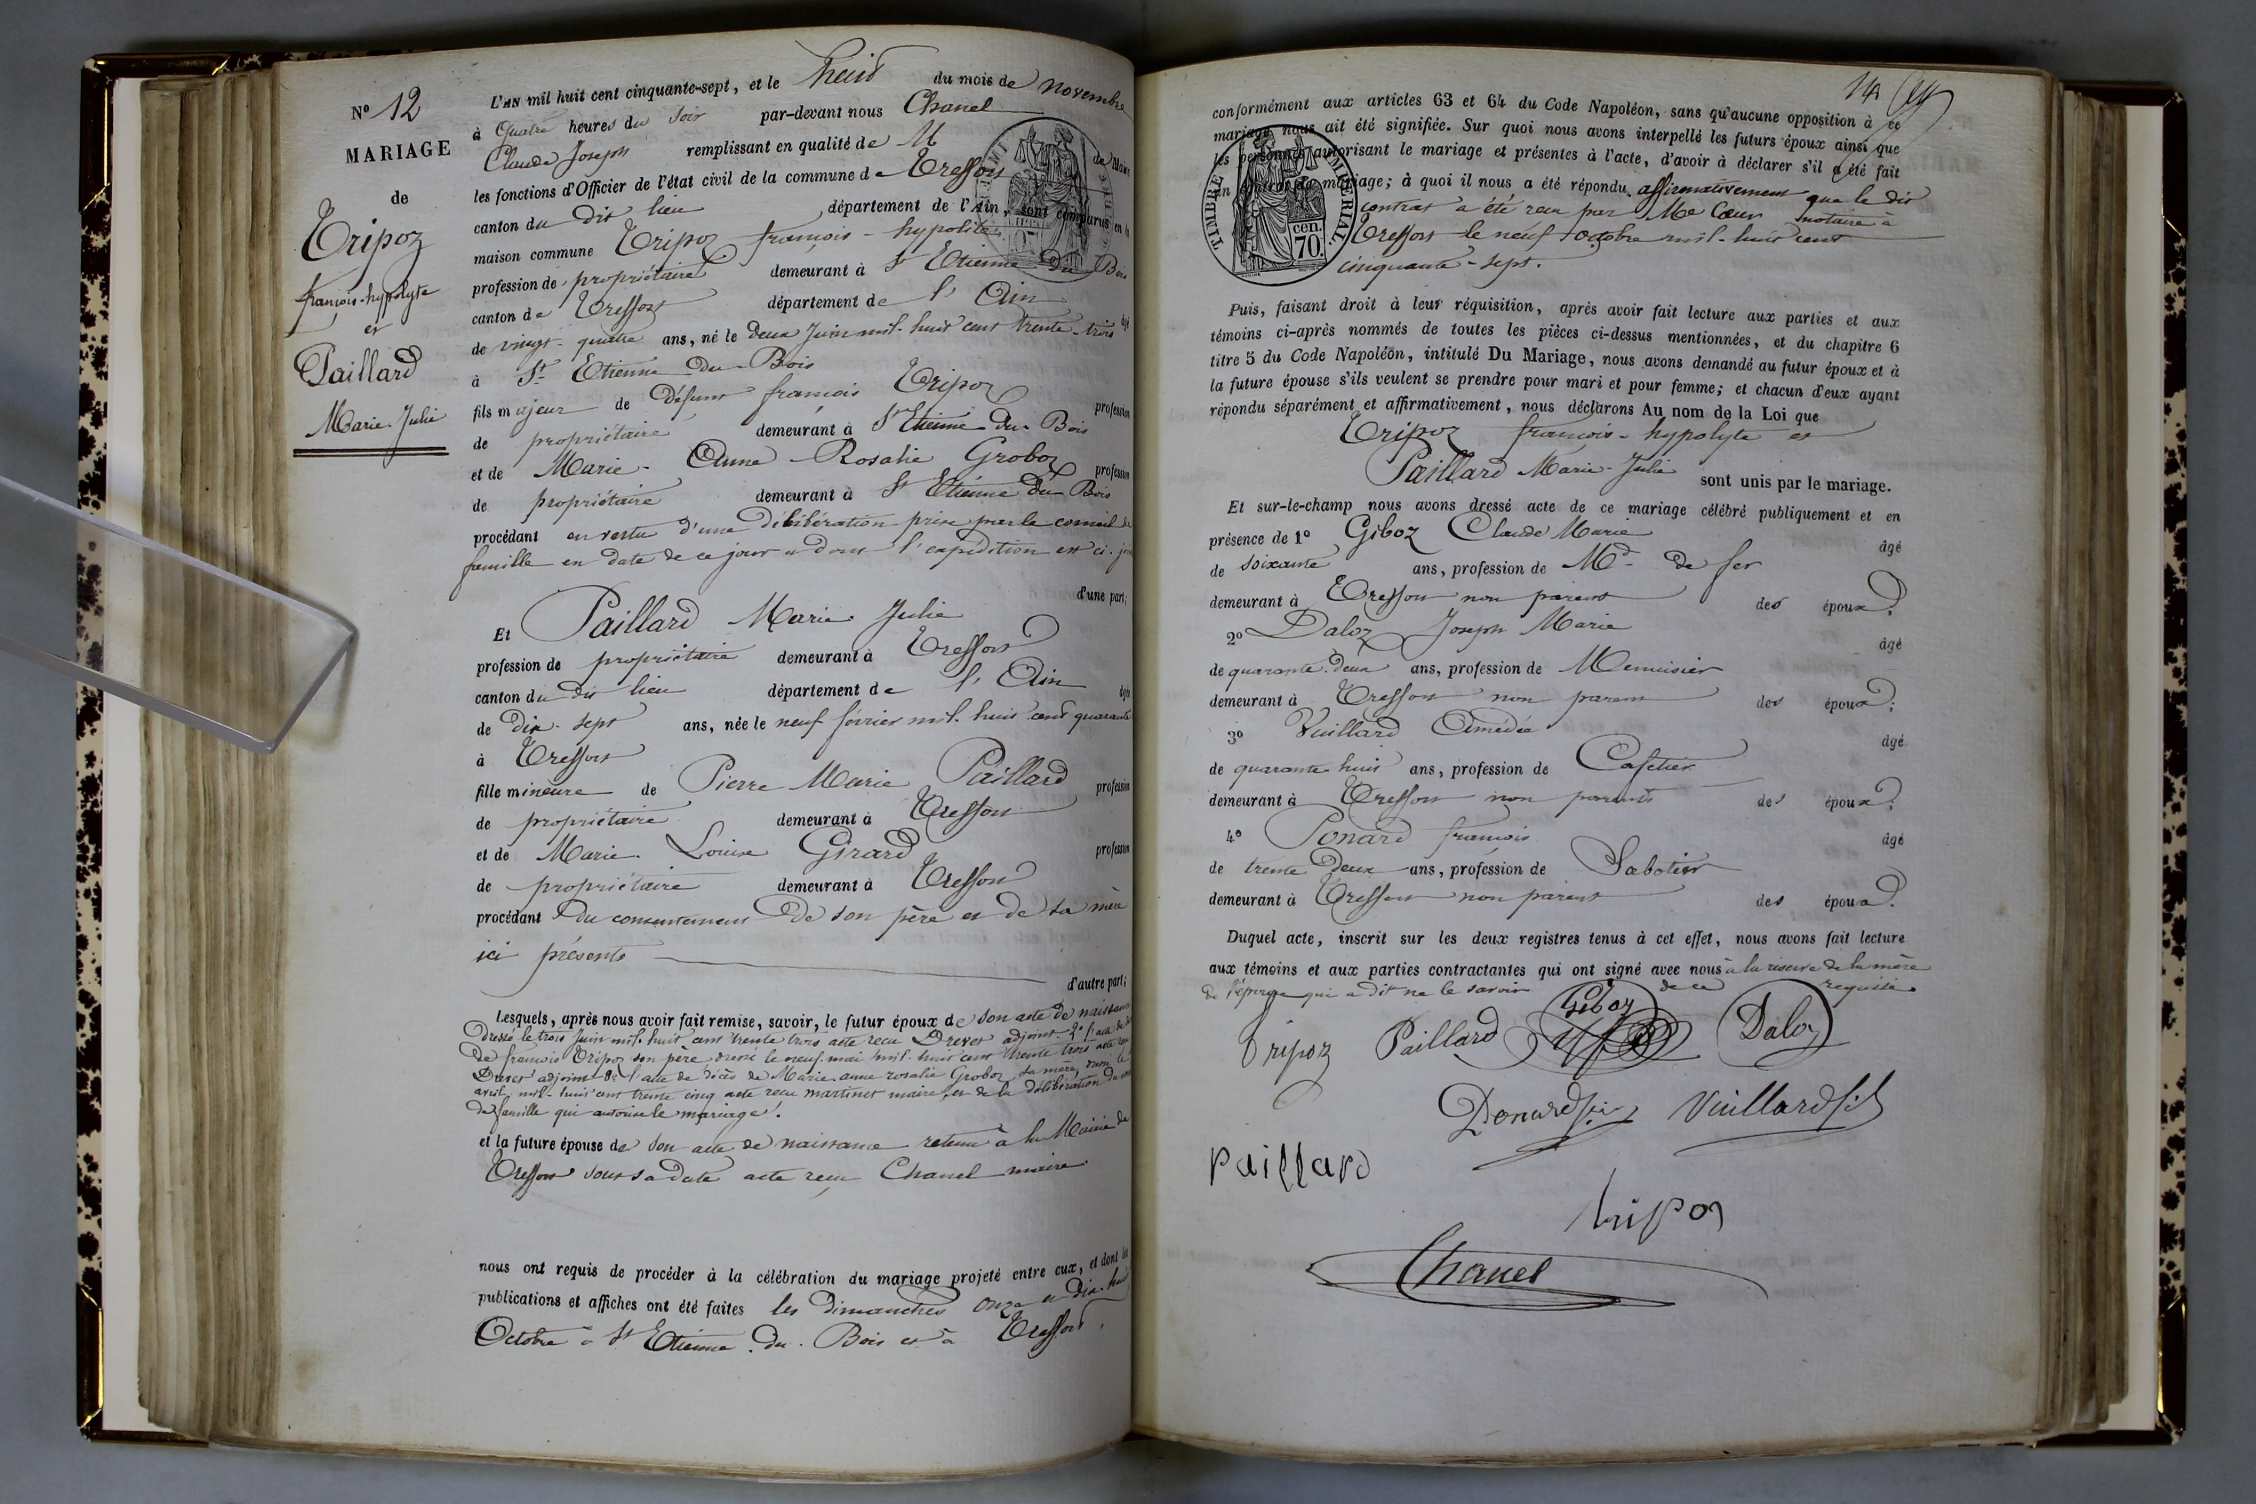 N° 12
MARIAGE
de
Tripoz
françois-hypolyte
et
Paillard
Marie-Julie
L'AN mil huit cent cinquante-sept, et le huit du mois de novembre
à quatre heures du soir par-devant nous Chanel
Claude Joseph remplissant en qualité de M de Maire
les fonctions d'Officier de l'état civil de la commune de Treffort
canton du dit lieu département de l'Ain, sont comparus en la
maison commune Tripoz françois-hypolite
profession de propriétaire demeurant à St Etienne du Bois
canton de Treffort département de l'Ain
de vingt-quatre ans, né le deux Juin mil-huit cent trente-trois
à St Etienne du-Bois
fils majeur de défunt françois Tripoz profession
de propriétaire demeurant à St Etienne du-Bois
et de Marie-Anne-Rosalie Groboz profession
de propriétaire demeurant à St Etienne du Bois
procédant en vertu d'une délibération prise par le conseil de
famille en date de ce jour et dont l'expédition est ci-
d'une part;
Et Paillard Marie-Julie
profession de propriétaire demeurant à Treffort
canton du dit lieu département de l'Ain
de dix-sept ans, née le neuf février mil-huit cent quarante
à Treffort
fille mineure de Pierre Marie Paillard profession
de propriétaire demeurant à Treffort
et de Marie-Louise Girard profession
de propriétaire demeurant à Treffort
procédant du consentement de son père et de sa mère
ici présents
d'autre part;
Lesquels, après nous avoir fait remise, savoir, le futur époux de son acte de naissance
dressé le trois Juin mil-huit cent trente trois acte recu Drevet adjoint 2° l'acte de
de françois Tripoz son père dressé le neuf mai mil-huit cent trente trois acte
Drevet adjoint 3° l'acte de décès de Marie-anne rosalie Groboz sa mère
avril mil-huit cent trente cinq acte recu martinet maire, et de la délibération du
de famille qui autorise le mariage.
et la future épouse de son acte de naissance retenu à la Mairie de
Treffort sous sa date acte recu Chanel maire
nous ont requis de procéder à la célébration du mariage projeté entre eux, et dont les
publications et affiches ont été faites les dimanches onze et dix-huit
Octobre à St Etienne-du-Bois et à Treffort,
14
conformément aux articles 63 et 64 du Code Napoléon, sans qu'aucune opposition à ce
mariage nous ait été signifiée. Sur quoi nous avons interpellé les futurs époux ainsi que
les personnes autorisant le mariage et présentes à l'acte, d'avoir à déclarer s'il a été fait
un contrat de mariage; à quoi il nous a été répondu affirmativement que le dit
contrat a été recu par Me Cœur notaire à
Treffort le neuf octobre mil-huit cent
cinquante-sept.
TIMBRE IMPÉRIAL.
cen.
70.
Puis, faisant droit à leur réquisition, après avoir fait lecture aux parties et aux
témoins ci-après nommés de toutes les pièces ci-dessus mentionnées, et du chapitre 6
titre 5 du Code Napoléon, intitulé Du Mariage, nous avons demandé au futur époux et à
la future épouse s'ils veulent se prendre pour mari et pour femme; et chacun d'eux ayant
répondu séparément et affirmativement, nous déclarons Au nom de la Loi que
Tripoz françois-hypolyte et
Paillard Marie-Julie sont unis par le mariage.
Et sur-le-champ nous avons dressé acte de ce mariage célébré publiquement et en
présence de 1° Giboz Claude Marie âgé
de soixante ans, profession de Md de fer
demeurant à Treffort non parent des époux;
2° Daloz Joseph Marie âgé
de quarante-deux ans, profession de Menuisier
demeurant à Treffort non parent des époux;
3° Vuillard Aimédée âgé
de quarante huit ans, profession de Cafetier
demeurant à Treffort non parents des époux;
4° Ponard françois âgé
de trente deux ans, profession de Sabotier
demeurant à Treffort non parent des époux.
Duquel acte, inscrit sur les deux registres tenus à cet effet, nous avons fait lecture
aux témoins et aux parties contractantes qui ont signé avec nous à la réserve de la mère
de l'épouse qui a dit ne le savoir de ce requise.
Tripoz Paillard Giboz Daloz
Ponard Vuillard fils
Paillard
tripoz
Chanel